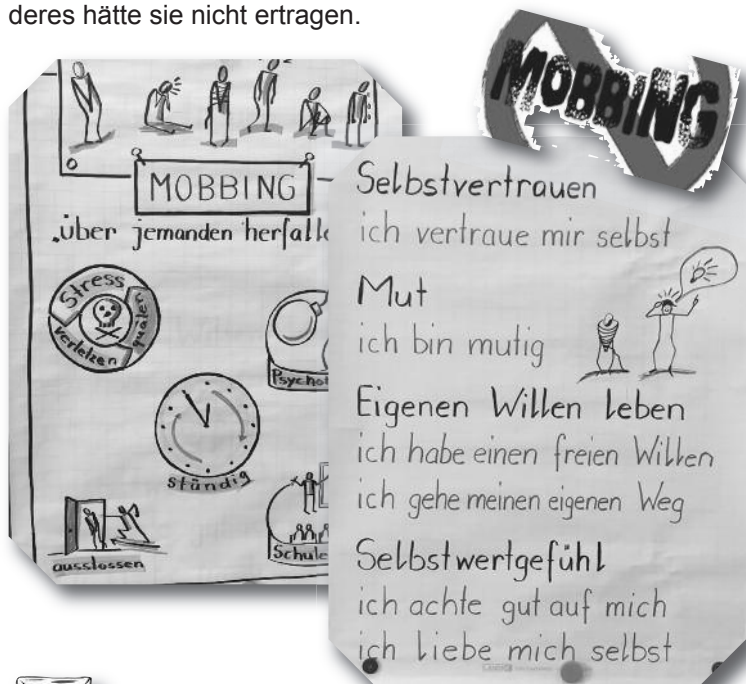 deres hätte sie nicht ertragen.
MOBBING
MOBBING
„über jemanden
Stress
quälen
verletzen
ständig
ausstossen
Schule
Selbstvertrauen
ich vertraue mir selbst
Mut
ich bin mutig
Eigenen Willen leben
ich habe einen freien Willen
ich gehe meinen eigenen Weg
Selbstwertgefühl
ich achte gut auf mich
ich liebe mich selbst